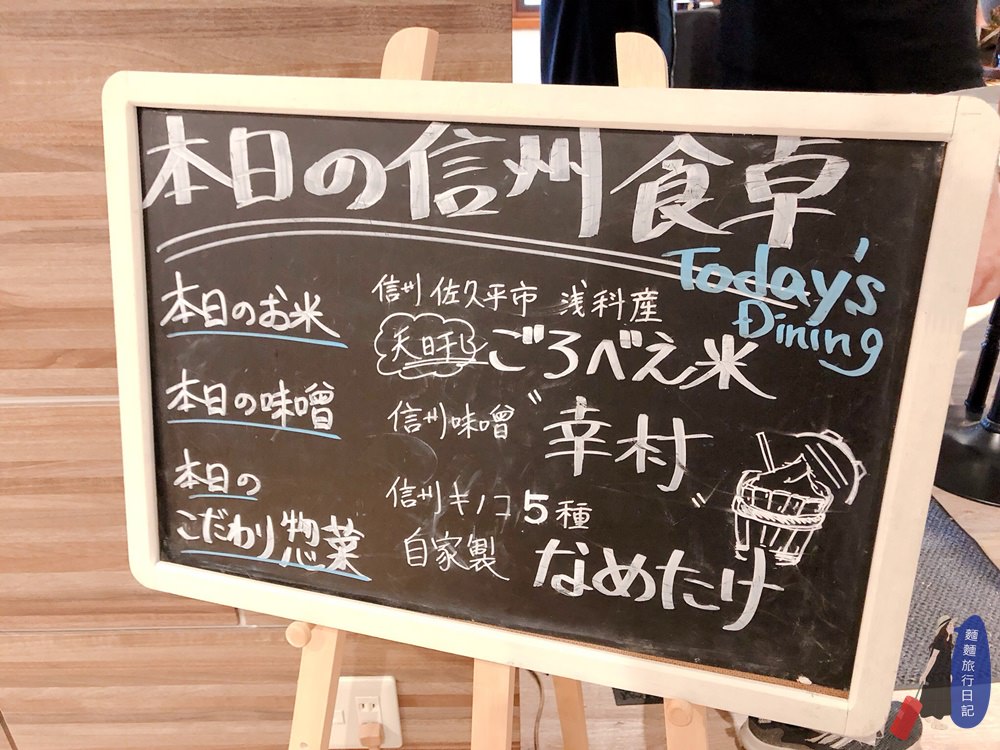 本日の信州食卓
Today's
Dining
本日のお米
信州 佐久平市 浅科産
天日干し ごろべえ米
本日の味噌
信州味噌 〝幸村〟
本日の
こだわり惣菜
信州キノコ5種
自家製 なめたけ
麵麵旅行日記